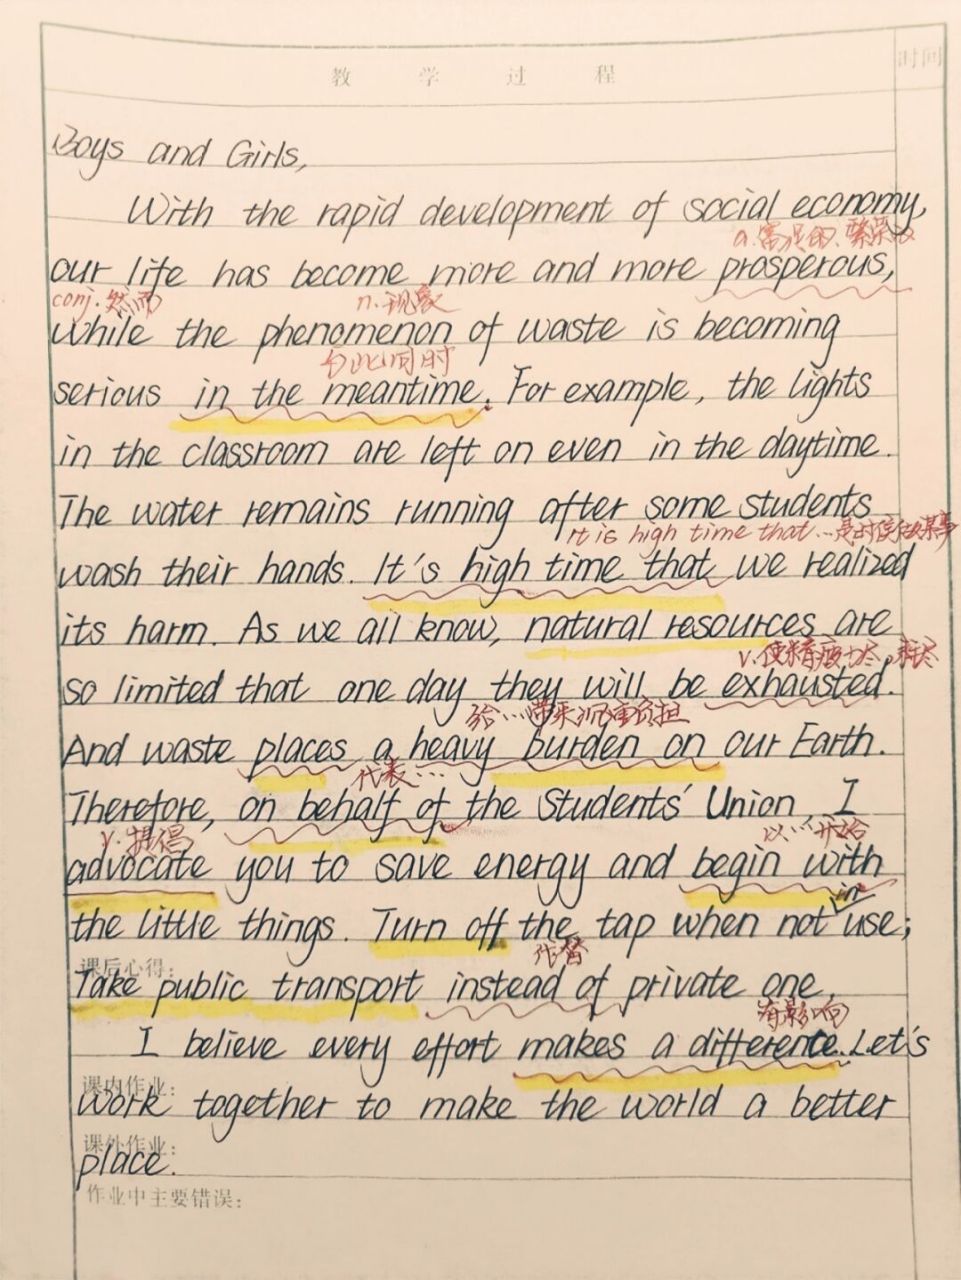 教 学 过 程
时间
Boys and Girls,
With the rapid development of social economy,
a.富足的、繁荣的
our life has become more and more prosperous,
conj. 然而 n.现象
while the phenomenon of waste is becoming
与此同时
serious in the meantime. For example, the lights
in the classroom are left on even in the daytime.
The water remains running after some students
It is high time that...是时候做某事
wash their hands. It's high time that we realized
its harm. As we all know, natural resources are
v.使精疲力尽,耗尽
so limited that one day they will be exhausted.
给...带来沉重负担
And waste places a heavy burden on our Earth.
代表...
Therefore, on behalf of the Students' Union, I
v.提倡 以...开始
advocate you to save energy and begin with
in
the little things. Turn off the tap when not use;
课后心得:
代替
Take public transport instead of private one.
有影响
I believe every effort makes a difference. Let's
课内作业:
work together to make the world a better
课外作业:
place.
作业中主要错误: